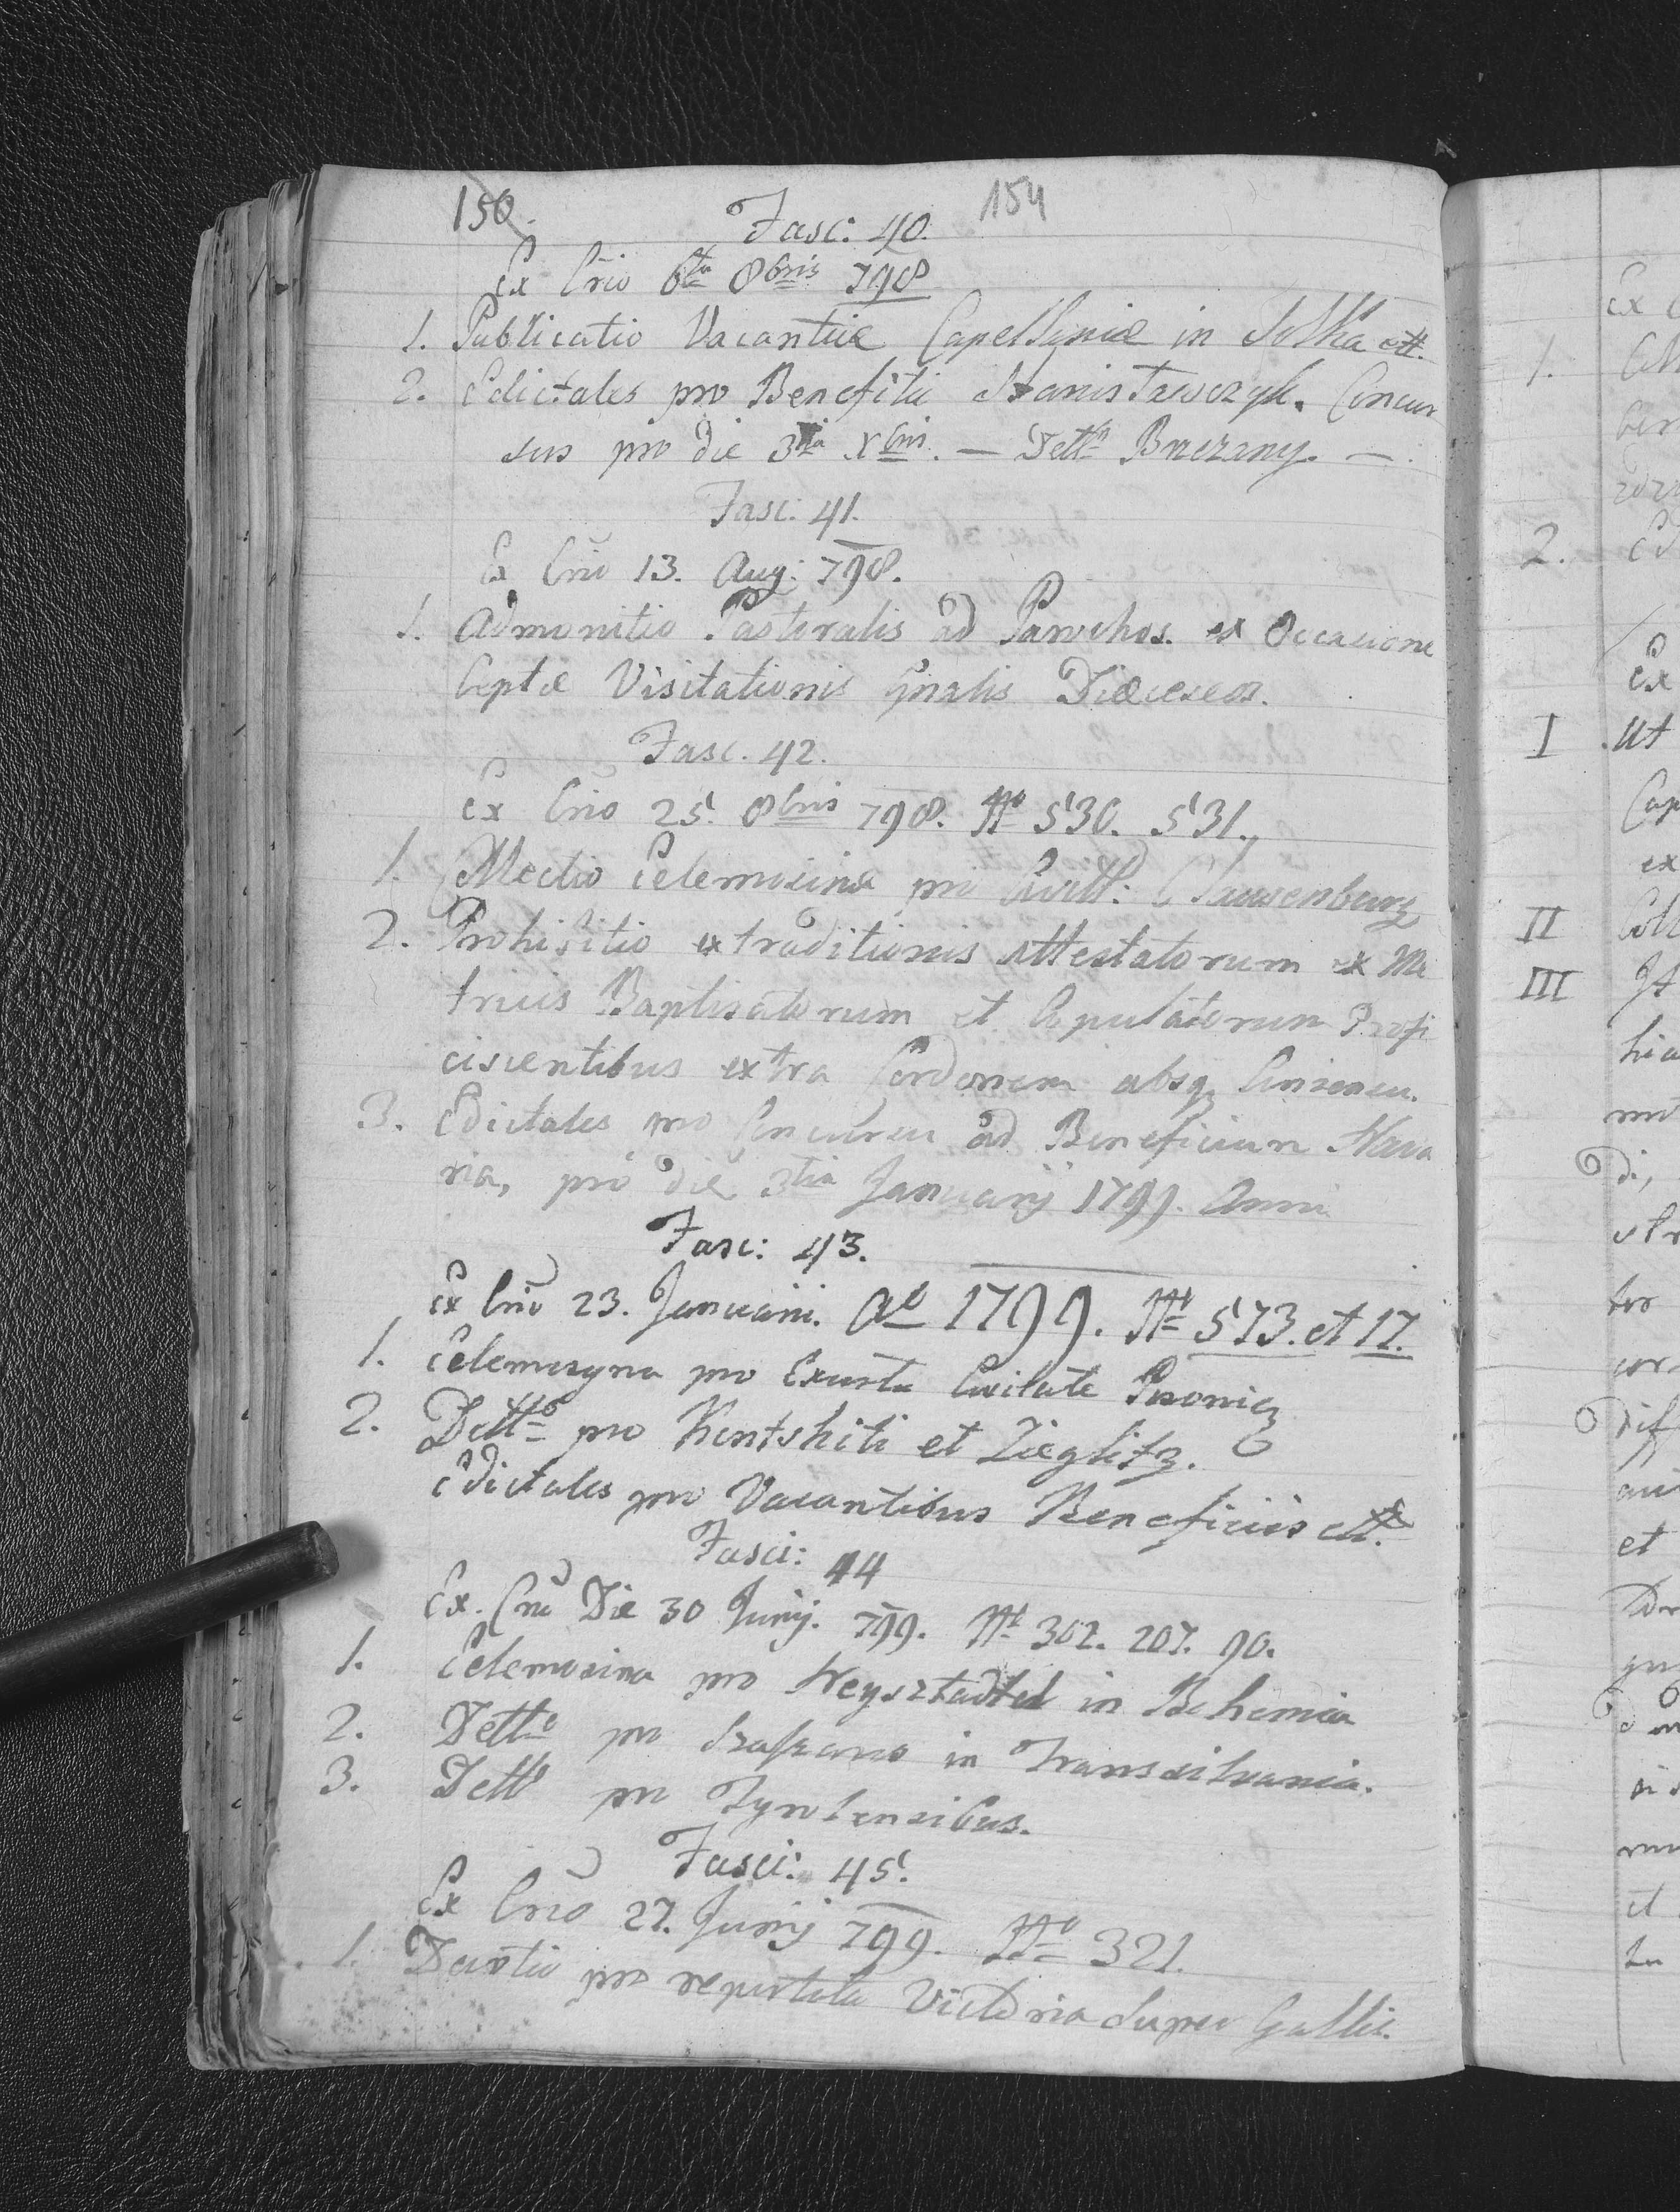 150. 154
Fasc: 40.
Ex Crio 6ta 8bris 798
1. Publicatio Vacantiæ Capellaniæ in
2. Edictales pro Benefitii Stanisławczyk. Concur
sus pro die 3tia Xbris. — Detto Brzezany. —
Fasc: 41.
Ex Crio 13. Aug: 798.
1. Admonitio Pastoralis ad Parochos. ex Occasione
Cęptæ Visitationis Gnralis Diæceseos.
Fasc. 42.
Ex Crio 25. 8bris 798. No 530. 531.
1. Collectio Eelemosinæ pro Civitt: Clausenburg
2. Prohibitio extraditionis Attestatorum ex Me
tricis Baptisatorum et Copulatorum Profi
ciscentibus extra Cordonem absq Consensu.
3. Edictales pro Concursu ad Beneficium Nava
ria, pro die 3tia Januarij 1799. Anni
Fasc: 43.
Ex Crio 23. Januarii. Ao 1799. No 573. et 17.
1. Eelemosyna pro Exusta Civitate
2. Detto pro Kentshiti et Zieglitz.
Edictales pro Vacantibus Beneficiis ett.
Fasci: 44
Ex. Crio Die 30 Junij. 799. No 302. 207. 90.
1. Eelemosina pro Neysztadtel in Bohemia
2. Detto pro in Transilvania.
3. Detto pro Tyrolensibus.
Fasci: 45.
Ex Crio 27. Junij 799. No 321.
1. Devotio pro reportata Victoria super Gallis.
Ex
1.
2. Ed
Ex
I Ut
Cap
ex
II Coll
III It
et